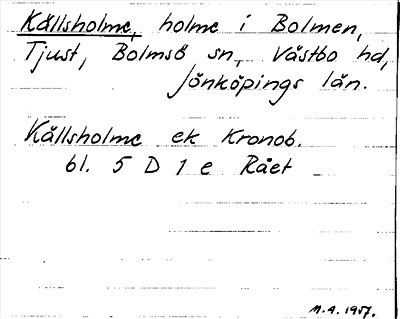 Källsholme, holme i Bolmen,
Tjust, Bolmsö sn, Västbo hd,
Jönköpings län.
Källsholme ek Kronob.
bl. 5 D 1 e Rået
M.A. 1957.